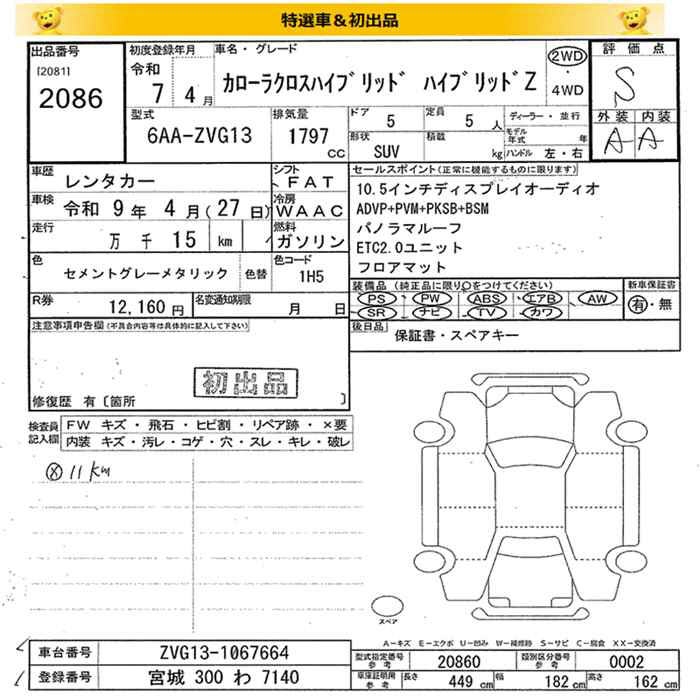 特選車&初出品
出品番号 初度登録年月 車名・グレード 2WD 評価点
[2081] 令和
2086 7 4月 カローラクロスハイブリッド ハイブリッドZ ・ 4WD S
型式 排気量 ドア 定員 ディーラー・並行 外装 内装
6AA-ZVG13 1797 cc 5 5人 モデル年式 年 A A
形状 積載
SUV kg ハンドル 左・右
車歴 レンタカー シフト FAT セールスポイント(正常に機能するものに限ります)
車検 令和 9年 4月(27日) 冷房 WAAC 10.5インチディスプレイオーディオ
ADVP+PVM+PKSB+BSM
走行 万 千 15 km 燃料 ガソリン パノラマルーフ
ETC2.0ユニット
色 セメントグレーメタリック 色替 色コード 1H5 フロアマット
装備品(純正品に限り○をつけてください) 新車保証書
R券 12,160円 名変通知期限 月 日 PS PW ABS エアB AW 有・無
SR ナビ TV カワ
注意事項申告欄(不具合内容等は具体的に記入して下さい) 後日品 保証書・スペアキー
初出品
修復歴 有〔箇所 〕
検査員記入欄 FW キズ・飛石・ヒビ割・リペア跡・×要
内装 キズ・汚レ・コゲ・穴・スレ・キレ・破レ
ⓧ 11km
スペア
A−キズ E−エクボ U−凹み W−補修跡 S−サビ C−腐食 XX−交換済
車台番号 ZVG13-1067664 型式指定番号参考 20860 類別区分番号参考 0002
登録番号 宮城 300 わ 7140 車庫証明用参考 長さ 449cm 幅 182cm 高さ 162cm